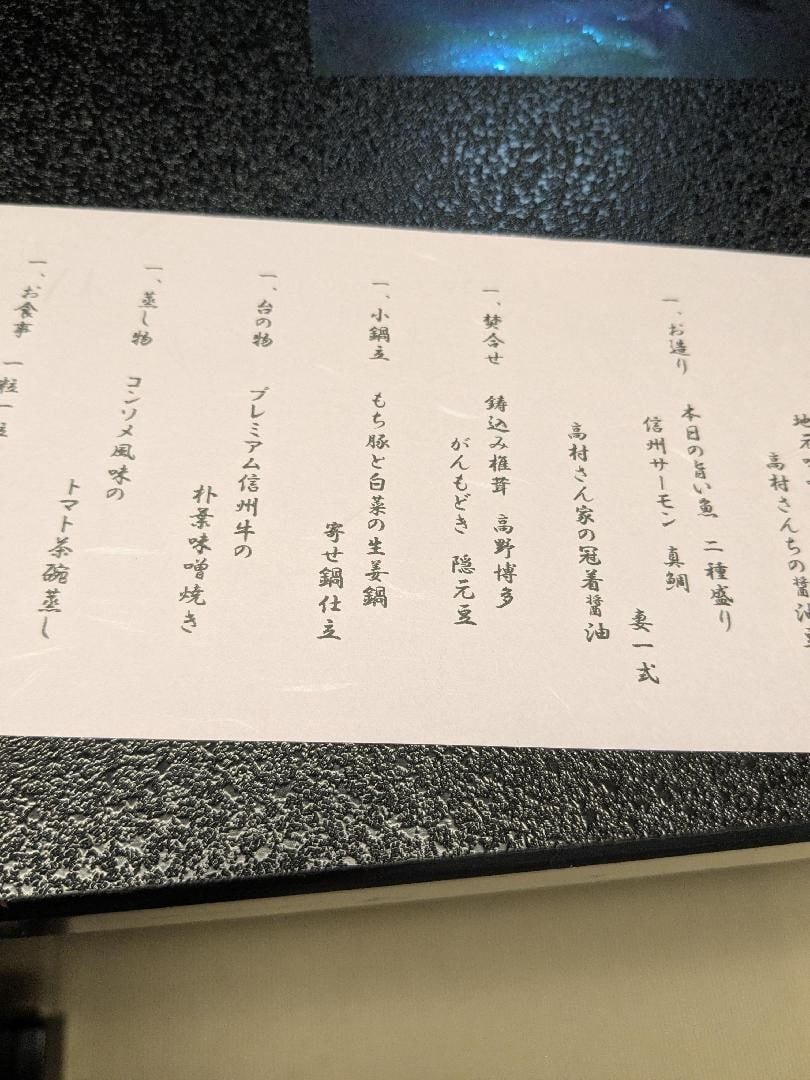 高村さんちの醤油豆
一、お造り
本日の旨い魚 二種盛り
信州サーモン 真鯛
妻一式
高村さん家の冠着醤油
一、焚合せ
鋳込み椎茸 高野博多
がんもどき 隠元豆
一、小鍋立
もち豚と白菜の生姜鍋
寄せ鍋仕立
一、台の物
プレミアム信州牛の
朴葉味噌焼き
一、蒸し物
コンソメ風味の
トマト茶碗蒸し
一、お食事
一粒一粒